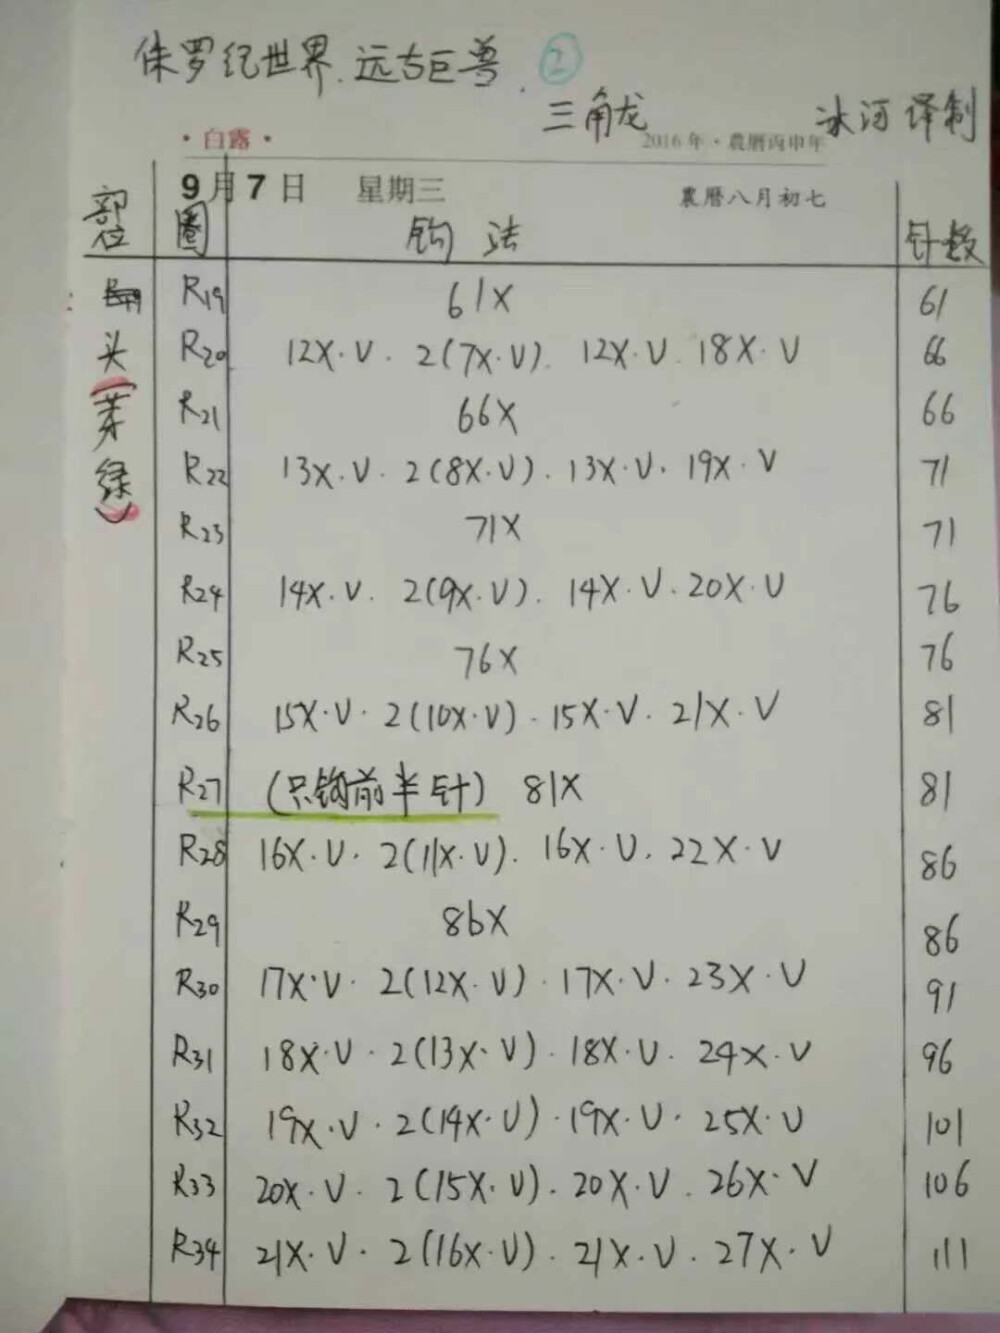 侏罗纪世界.远古巨兽. ②
三角龙 冰河译制
·白露· 2016年·農曆丙申年
9月7日 星期三 農曆八月初七
部位 圈 钩法 针数
R19 61X 61
头(芽绿) R20 12X·V·2(7X·V).12X·V 18X·V 66
R21 66X 66
R22 13X·V·2(8X·V).13X·V·19X·V 71
R23 71X 71
R24 14X·V.2(9X·V).14X·V.20X·V 76
R25 76X 76
R26 15X·V·2(10X·V)·15X·V.21X·V 81
R27 (只钩前半针) 81X 81
R28 16X·V·2(11X·V).16X·V.22X·V 86
R29 86X 86
R30 17X·V·2(12X·V)·17X·V·23X·V 91
R31 18X·V·2(13X·V)·18X·V.24X·V 96
R32 19X·V·2(14X·V)·19X·V·25X·V 101
R33 20X·V·2(15X·V).20X·V.26X·V 106
R34 21X·V·2(16X·V)·21X·V·27X·V 111